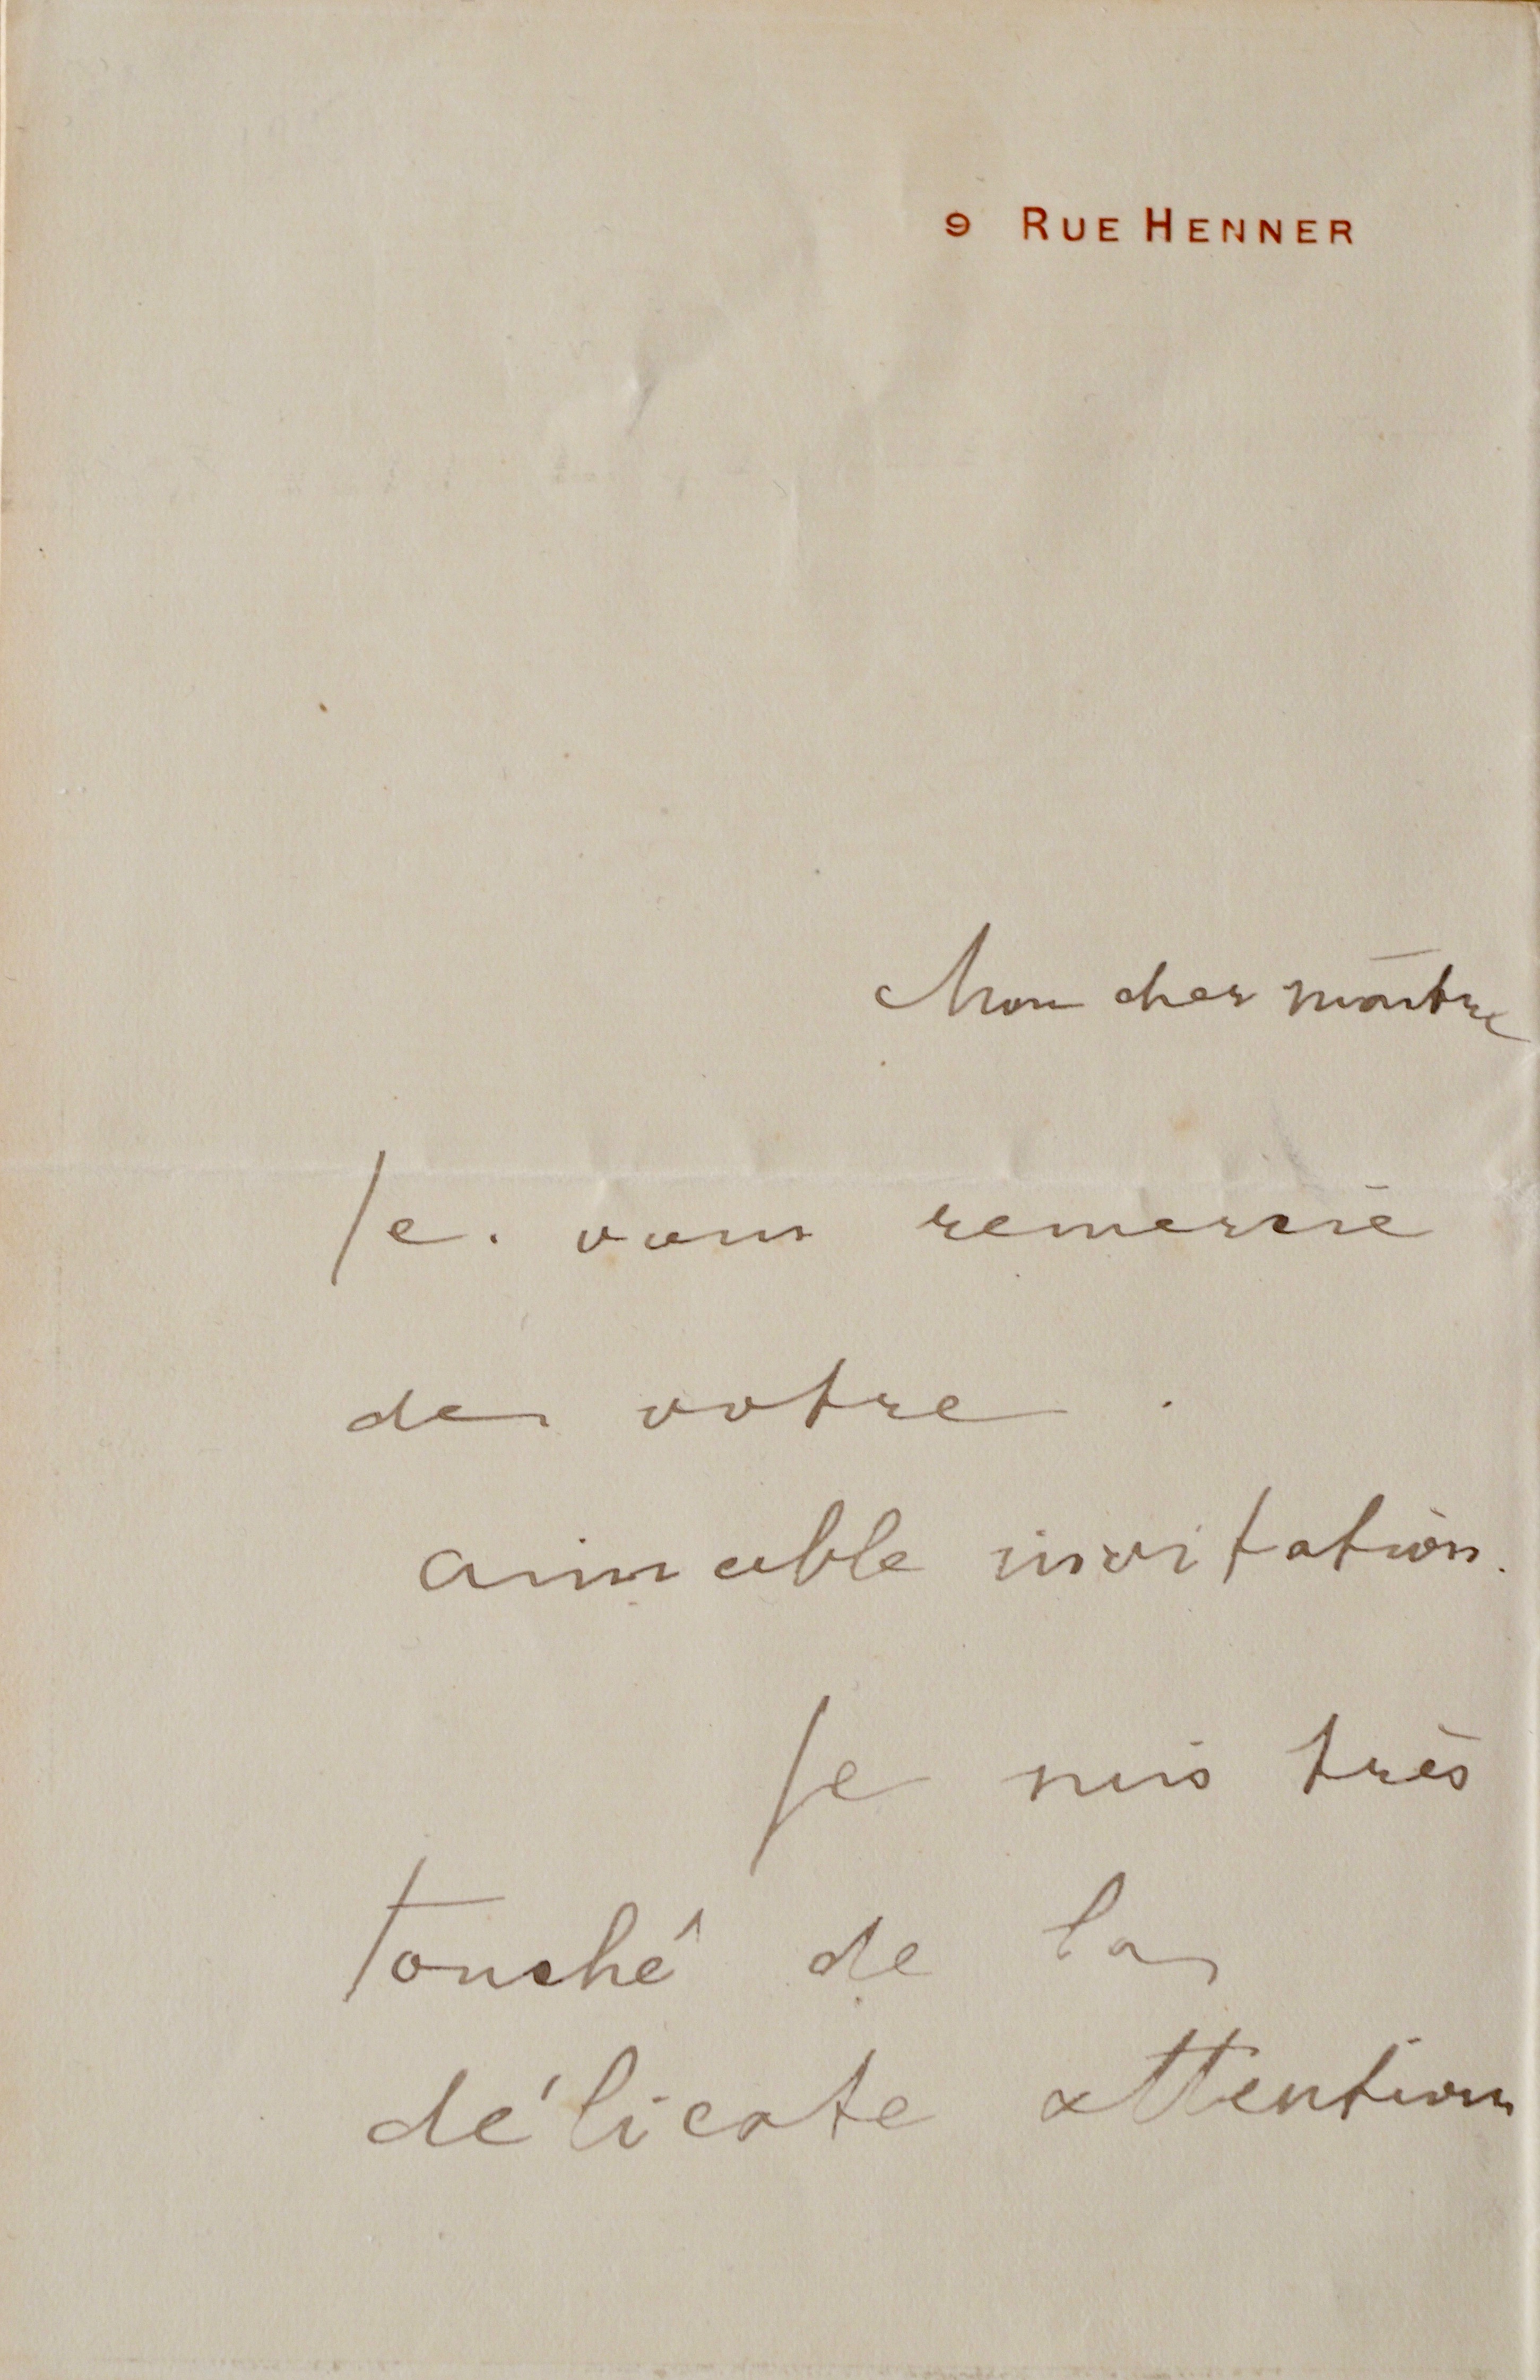 9 RUE HENNER
Mon cher maître
Je vous remercie
de votre
aimable invitation.
Je suis très
touché de la
délicate attention